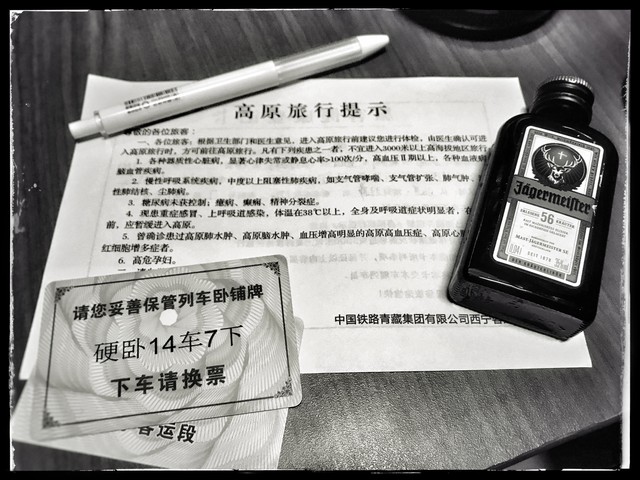 高原旅行提示
尊敬的各位旅客:
一、各位旅客:根据卫生部门和医生意见,进入高原旅行前建议您进行体检,由医生确认可进
入高原旅行时,方可前往高原旅行。凡有下列疾患之一者,不宜进入3000米以上高海拔地区旅行
1. 各种器质性心脏病,显著心律失常或静息心率>100次/分,高血压Ⅱ期以上,各种血液病
脑血管疾病。
2. 慢性呼吸系统疾病,中度以上阻塞性肺疾病,如支气管哮喘、支气管扩张、肺气肿、
性肺结核、尘肺病。
3. 糖尿病未获控制;癔病、癫痫、精神分裂症。
4. 现患重症感冒、上呼吸道感染,体温在38℃以上,全身及呼吸道症状明显者,在
前,应暂缓进入高原。
5. 曾确诊患过高原肺水肿、高原脑水肿、血压增高明显的高原高血压症、高原心
红细胞增多症者。
6. 高危孕妇。
中国铁路青藏集团有限公司西宁客
请您妥善保管列车卧铺牌
硬卧14车7下
下车请换票
客运段
Jägermeister
56
MAST-JÄGERMEISTER SE
SEIT 1878